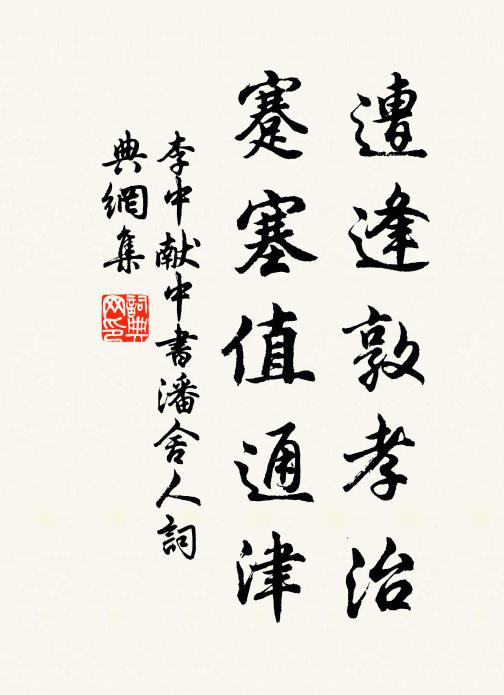 遭逢敦孝治
蹇塞值通津
李中献中書潘舍人詞
典網集
詞典网印